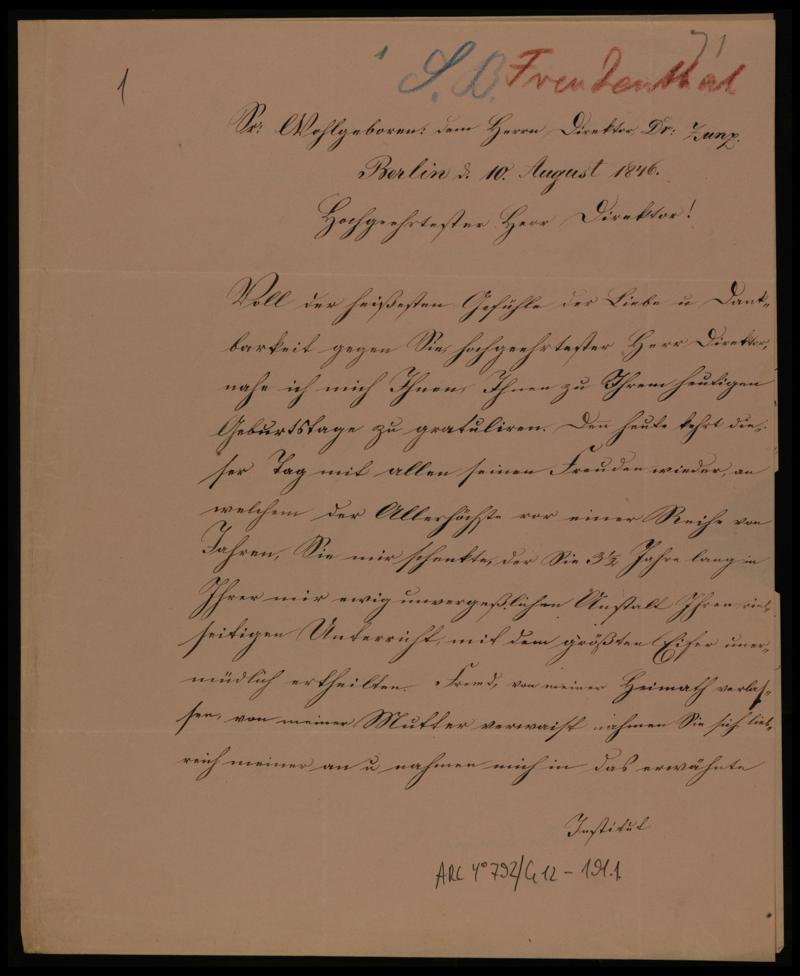 71
1
1
S. B. Freudenthal
Sr: Wohlgeboren: dem Herrn Direktor, Dr: Zunz.
Berlin d. 10. August 1846.
Hochgeehrtester Herr Direktor!
Voll der heißesten Gefühle der Liebe u Dank-
barkeit gegen Sie, hochgeehrtester Herr Direktor,
nahe ich mich Ihnen, Ihnen zu Ihrem heutigen
Geburtstage zu gratuliren. Den heute kehrt die-
ser Tag mit allen seinen Freuden wieder, an
welchem der Allerhöchste vor einer Reihe von
Jahren, Sie mir schenkte, der Sie 3½ Jahre lang in
Ihrer mir ewig unvergeßlichen Anstalt Ihren viel-
seitigen Unterricht, mit dem größten Eifer uner-
müdlich ertheilten. Fremd, von meiner Heimath verlas-
sen, von meiner Mutter verwaist nahmen Sie sich lieb-
reich meiner an u nahmen mich in das erwähnte
Institut
ARC 4° 792/G12 - 191.1